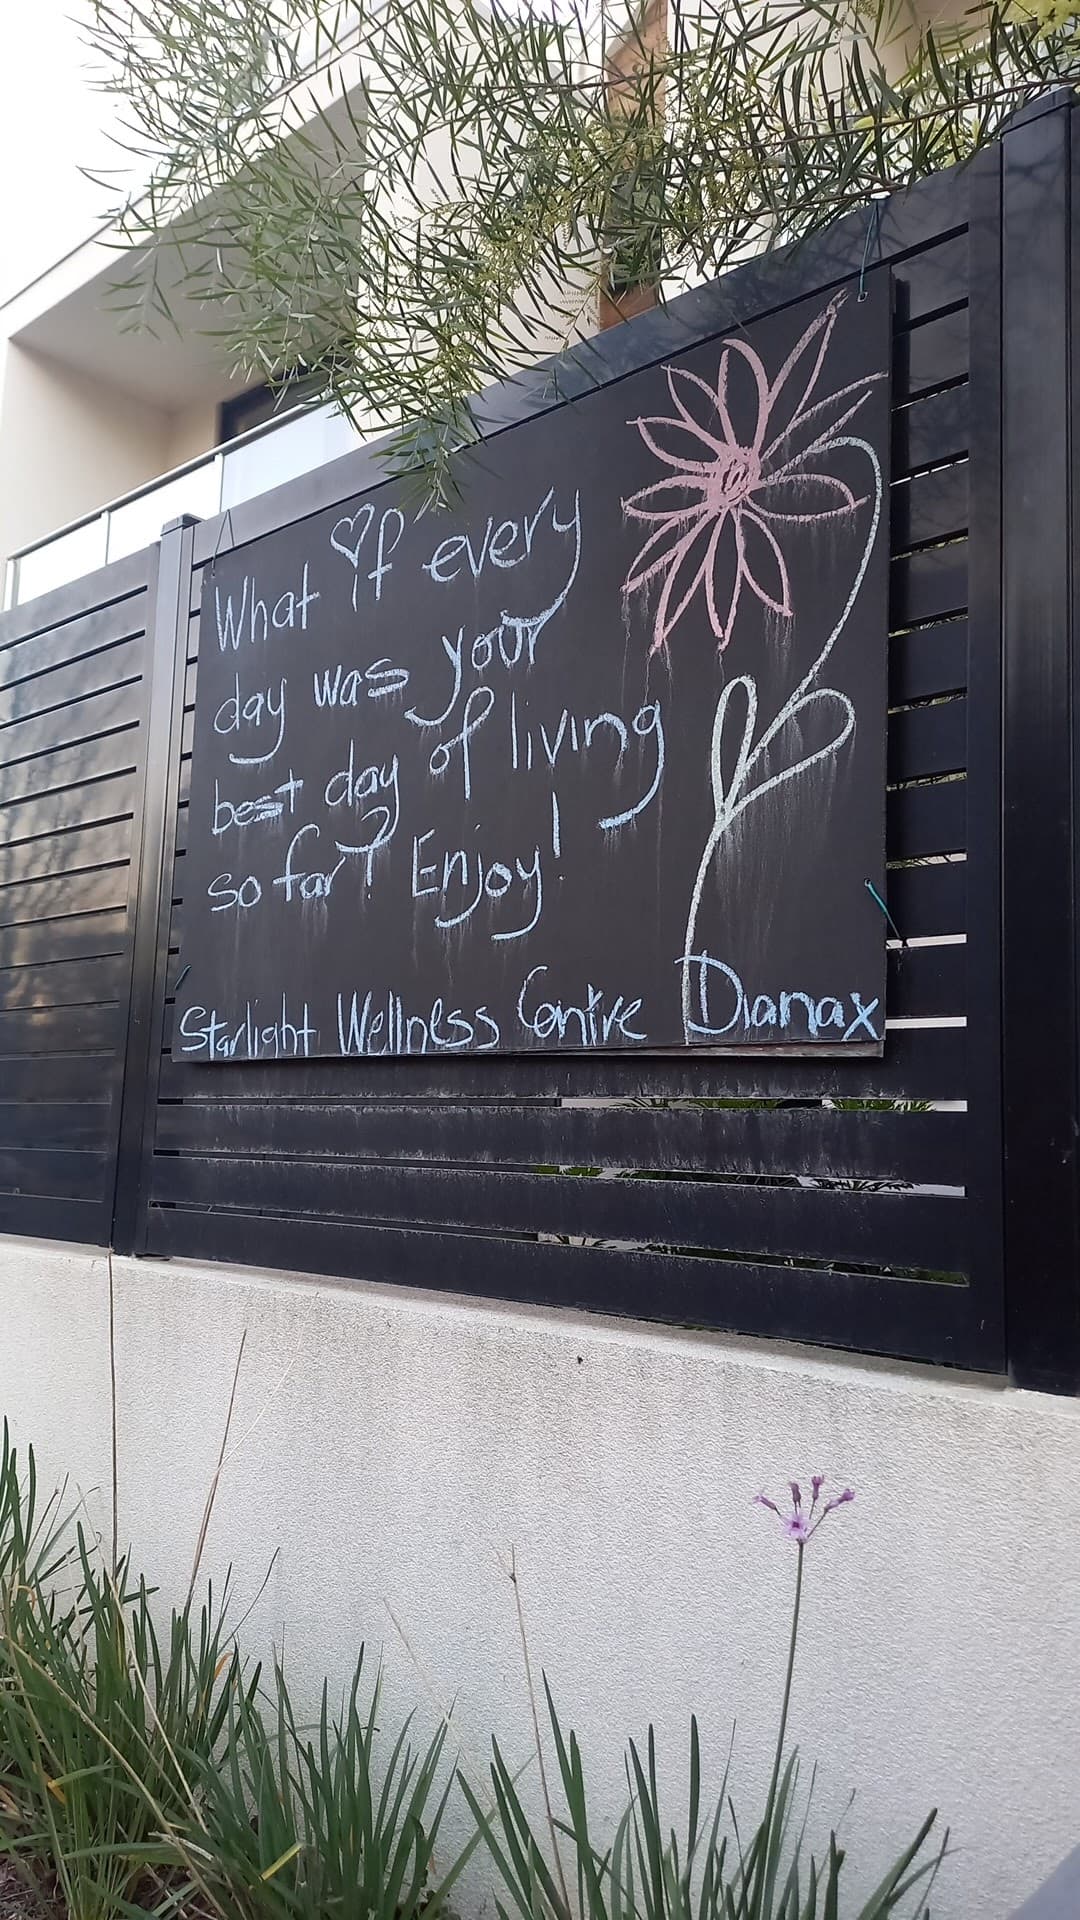 What if every
day was your
best day of living
so far? Enjoy!
Starlight Wellness Centre Dianax